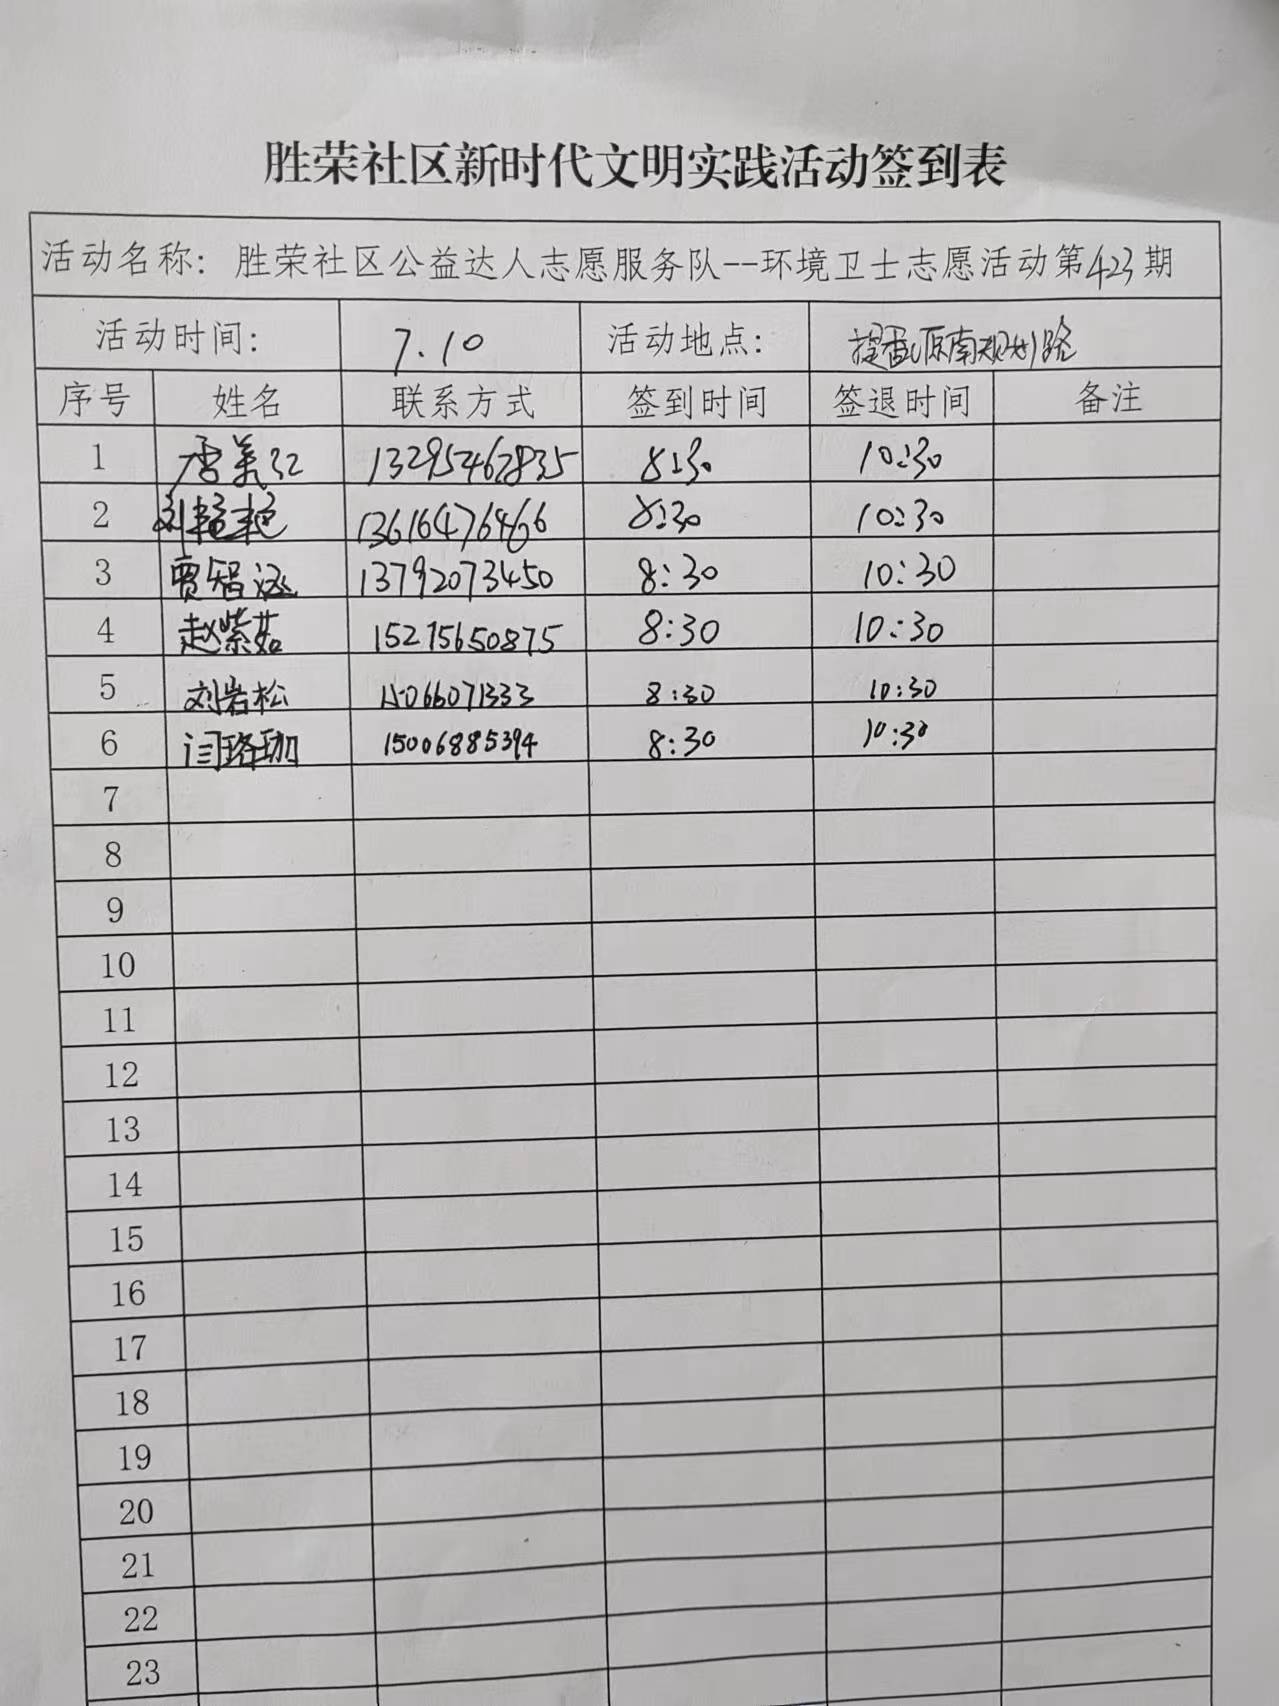 胜荣社区新时代文明实践活动签到表
活动名称：胜荣社区公益达人志愿服务队--环境卫士志愿活动第423期
活动时间： 7.10 活动地点： 提香源南规划路
序号 姓名 联系方式 签到时间 签退时间 备注
1 李美红 13295462835 8:30 10:30
2 刘艳艳 13616476466 8:30 10:30
3 贾智涵 13792073450 8:30 10:30
4 赵紫茹 15275650875 8:30 10:30
5 刘岩松 15066071333 8:30 10:30
6 闫珞珈 15006885394 8:30 10:30
7
8
9
10
11
12
13
14
15
16
17
18
19
20
21
22
23